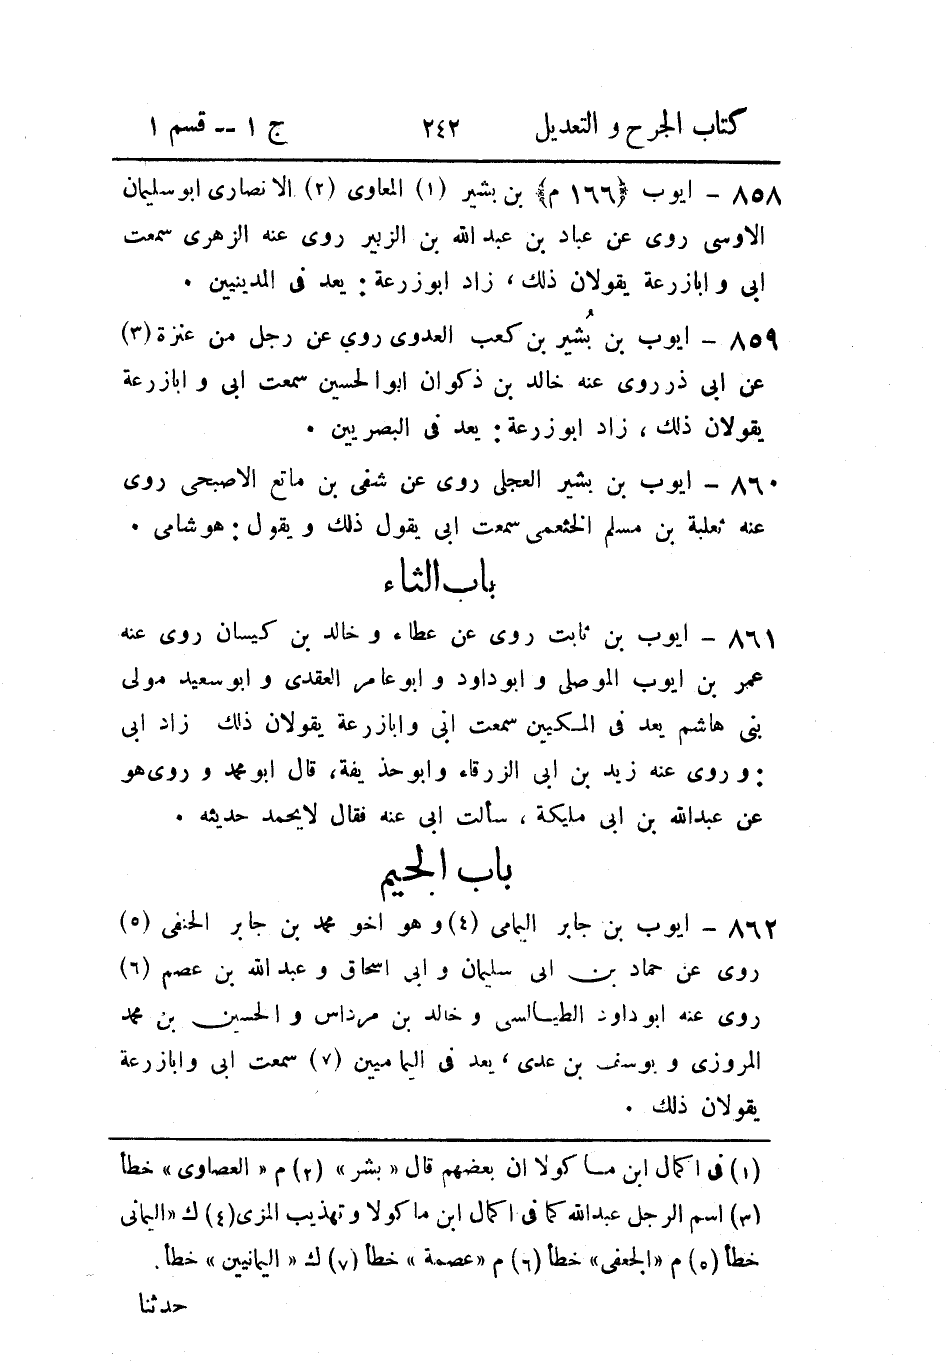 كتاب الجرح و التعديل ٢٤٢ ج ١ -- قسم ١
٨٥٨ - ايوب ﴿١٦٦ م﴾ بن بشير (١) المعاوى (٢) الانصارى ابو سليمان
الاوسى روى عن عباد بن عبد الله بن الزبير روى عنه الزهرى سمعت
ابى و ابا زرعة يقولان ذلك ، زاد ابوزرعة : يعد فى المدينيين .
٨٥٩ - ايوب بن بُشير بن كعب العدوى روى عن رجل من عنزة (٣)
عن ابى ذر روى عنه خالد بن ذكوان ابو الحسين سمعت ابى و ابا زرعة
يقولان ذلك ، زاد ابوزرعة : يعد فى البصريين .
٨٦٠ - ايوب بن بشير العجلى روى عن شفى بن ماتع الاصبحى روى
عنه ثعلبة بن مسلم الخثعمى سمعت ابى يقول ذلك و يقول : هو شامى .
باب الثاء
٨٦١ - ايوب بن ثابت روى عن عطاء و خالد بن كيسان روى عنه
عمر بن ايوب الموصلى و ابو داود و ابو عامر العقدى و ابو سعيد مولى
بنى هاشم يعد فى المكيين سمعت ابى و ابا زرعة يقولان ذلك زاد ابى
: و روى عنه زيد بن ابى الزرقاء و ابو حذيفة، قال ابو محمد و روى هو
عن عبدالله بن ابى مليكة ، سألت ابى عنه فقال لا يحمد حديثه .
باب الجيم
٨٦٢ - ايوب بن جابر اليمامى (٤) و هو اخو محمد بن جابر الحنفى (٥)
روى عن حماد بن ابى سليمان و ابى اسحاق و عبد الله بن عصم (٦)
روى عنه ابو داود الطيالسى و خالد بن مرداس و الحسين بن محمد
المروزى و يوسف بن عدى ، يعد فى اليماميين (٧) سمعت ابى و ابا زرعة
يقولان ذلك .
(١) فى اكمال ابن ماكولا ان بعضهم قال « بشر » (٢) م « العصاوى » خطأ
(٣) اسم الرجل عبدالله كما فى اكمال ابن ماكولا و تهذيب المزى (٤) ك «اليمانى
خطأ (٥) م «الجعفى» خطأ (٦) م «عصمة » خطأ (٧) ك « اليمانيين » خطأ .
حدثنا